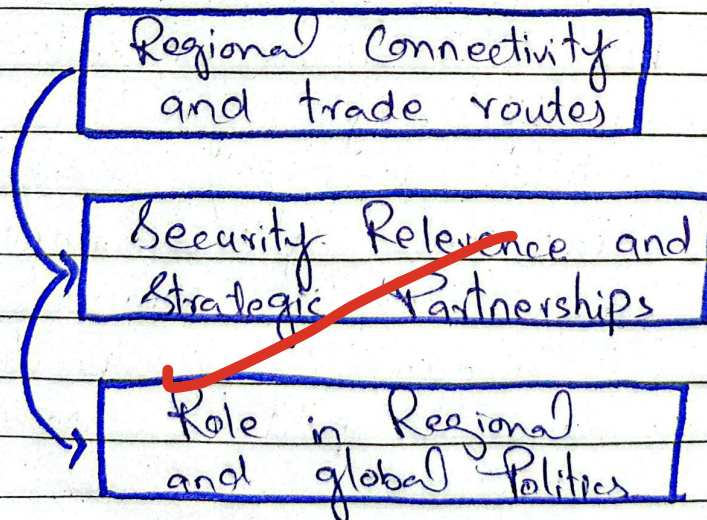 Regional Connectivity
and trade routes
Security Relevance and
Strategic Partnerships
Role in Regional
and global Politics